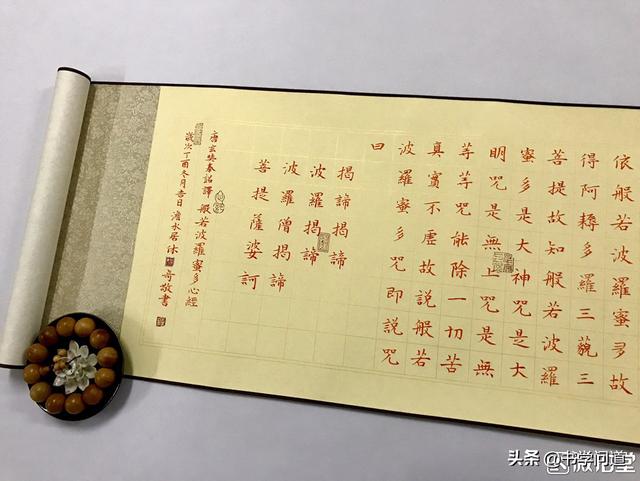 依般若波羅蜜多故
得阿耨多羅三藐三
菩提故知般若波羅
蜜多是大神咒是大
明咒是無上咒是無
等等咒能除一切苦
真實不虛故說般若
波羅蜜多咒即說咒
曰
揭諦揭諦
波羅揭諦
波羅僧揭諦
菩提薩婆訶
唐玄奘奉詔譯 般若波羅蜜多心經
歲次丁酉冬月吉日 水居沐 敬書
头条 @中学问道